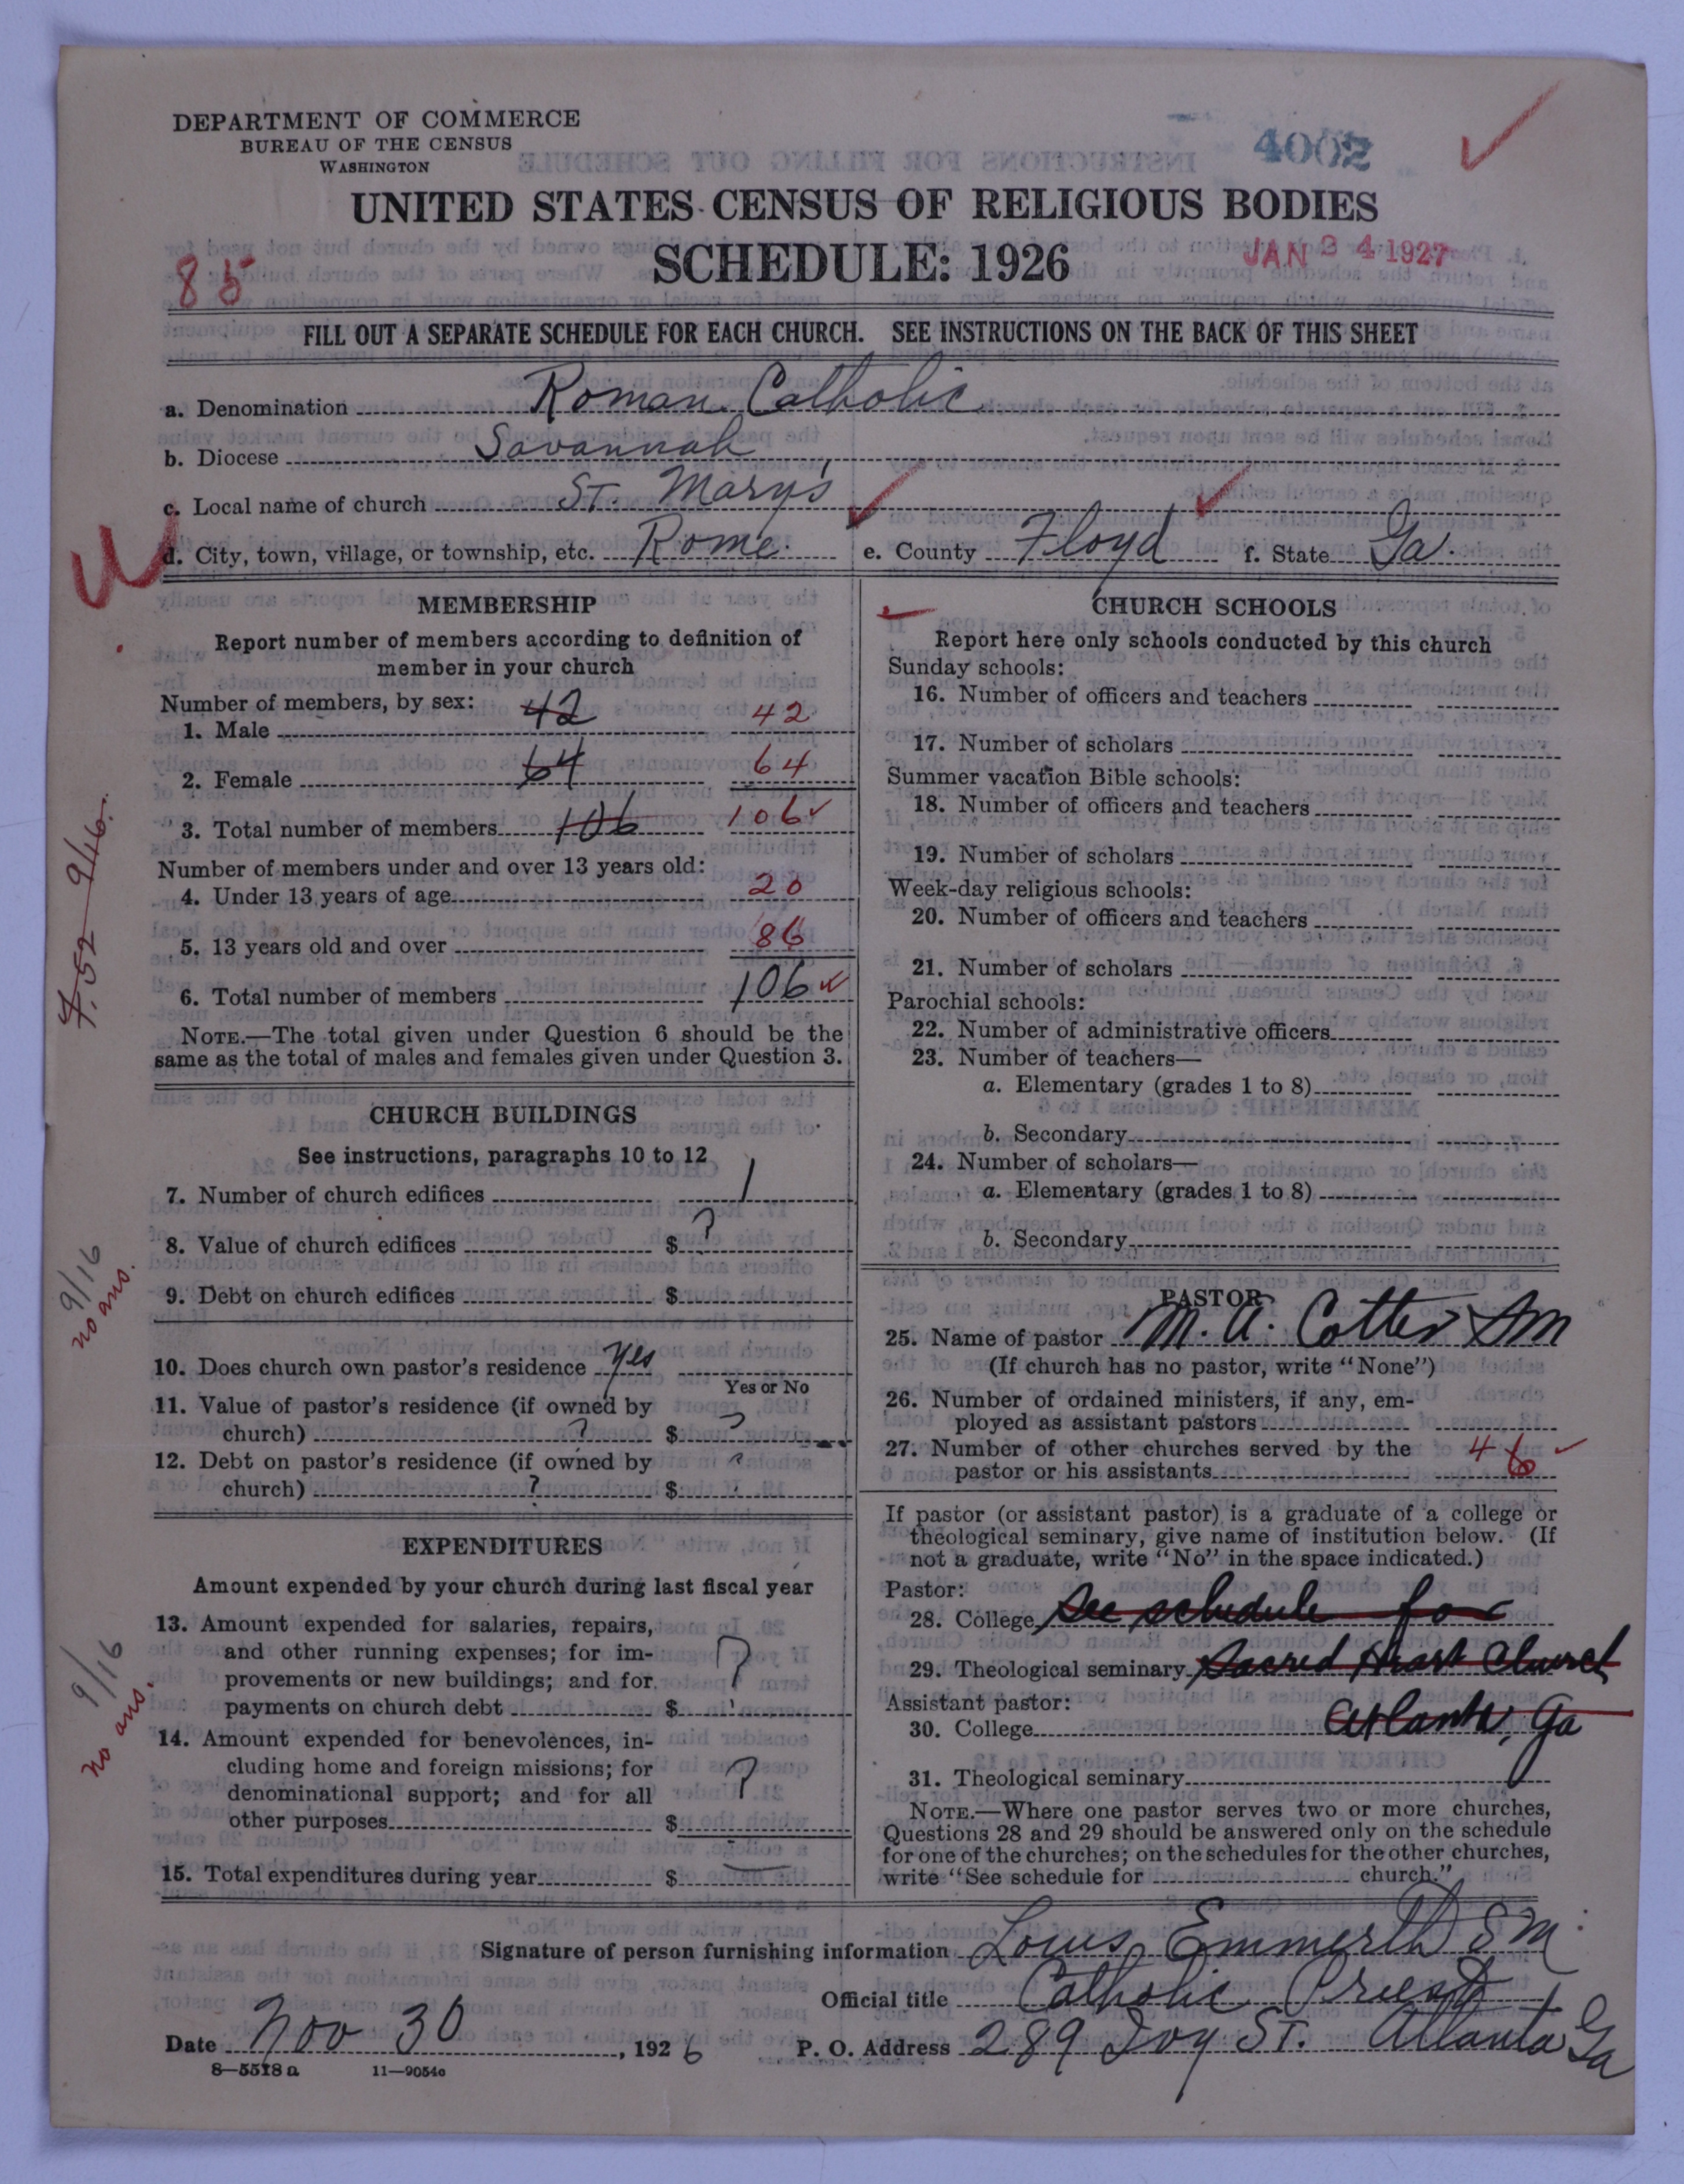 DEPARTMENT OF COMMERCE
BUREAU OF THE CENSUS
WASHINGTON
4002
UNITED STATES CENSUS OF RELIGIOUS BODIES
SCHEDULE: 1926
JAN 24 1927
85
FILL OUT A SEPARATE SCHEDULE FOR EACH CHURCH. SEE INSTRUCTIONS ON THE BACK OF THIS SHEET
a. Denomination Roman Catholic
b. Diocese Savannah
c. Local name of church St. Mary's
d. City, town, village, or township, etc. Rome. e. County Floyd f. State Ga.
MEMBERSHIP
Report number of members according to definition of
member in your church
Number of members, by sex:
1. Male 42 42
2. Female 64 64
3. Total number of members 106 106
Number of members under and over 13 years old:
4. Under 13 years of age 20
5. 13 years old and over 86
6. Total number of members 106
NOTE.—The total given under Question 6 should be the
same as the total of males and females given under Question 3.
9/16.
CHURCH BUILDINGS
See instructions, paragraphs 10 to 12
7. Number of church edifices 1
8. Value of church edifices $ ?
9. Debt on church edifices $
9/16
no ans.
10. Does church own pastor's residence yes
Yes or No
11. Value of pastor's residence (if owned by
church) ? $ ?
12. Debt on pastor's residence (if owned by
church) ? $ ?
EXPENDITURES
Amount expended by your church during last fiscal year
13. Amount expended for salaries, repairs,
and other running expenses; for im-
provements or new buildings; and for
payments on church debt $ ?
14. Amount expended for benevolences, in-
cluding home and foreign missions; for
denominational support; and for all
other purposes $ ?
15. Total expenditures during year $ —
9/16
no ans.
CHURCH SCHOOLS
Report here only schools conducted by this church
Sunday schools:
16. Number of officers and teachers
17. Number of scholars
Summer vacation Bible schools:
18. Number of officers and teachers
19. Number of scholars
Week-day religious schools:
20. Number of officers and teachers
21. Number of scholars
Parochial schools:
22. Number of administrative officers
23. Number of teachers—
a. Elementary (grades 1 to 8)
b. Secondary
24. Number of scholars—
a. Elementary (grades 1 to 8)
b. Secondary
PASTOR
25. Name of pastor M. A. Cotter SM
(If church has no pastor, write "None")
26. Number of ordained ministers, if any, em-
ployed as assistant pastors
27. Number of other churches served by the
pastor or his assistants 4 6
If pastor (or assistant pastor) is a graduate of a college or
theological seminary, give name of institution below. (If
not a graduate, write "No" in the space indicated.)
Pastor:
28. College See schedule for
29. Theological seminary Sacred Heart Church
Assistant pastor:
30. College Atlanta, Ga
31. Theological seminary
NOTE.—Where one pastor serves two or more churches,
Questions 28 and 29 should be answered only on the schedule
for one of the churches; on the schedules for the other churches,
write "See schedule for church."
Signature of person furnishing information Louis Emmerth SM
Official title Catholic Priest
Date Nov 30, 1926 P. O. Address 289 Ivy St. Atlanta Ga
8—5518 a 11—9054a